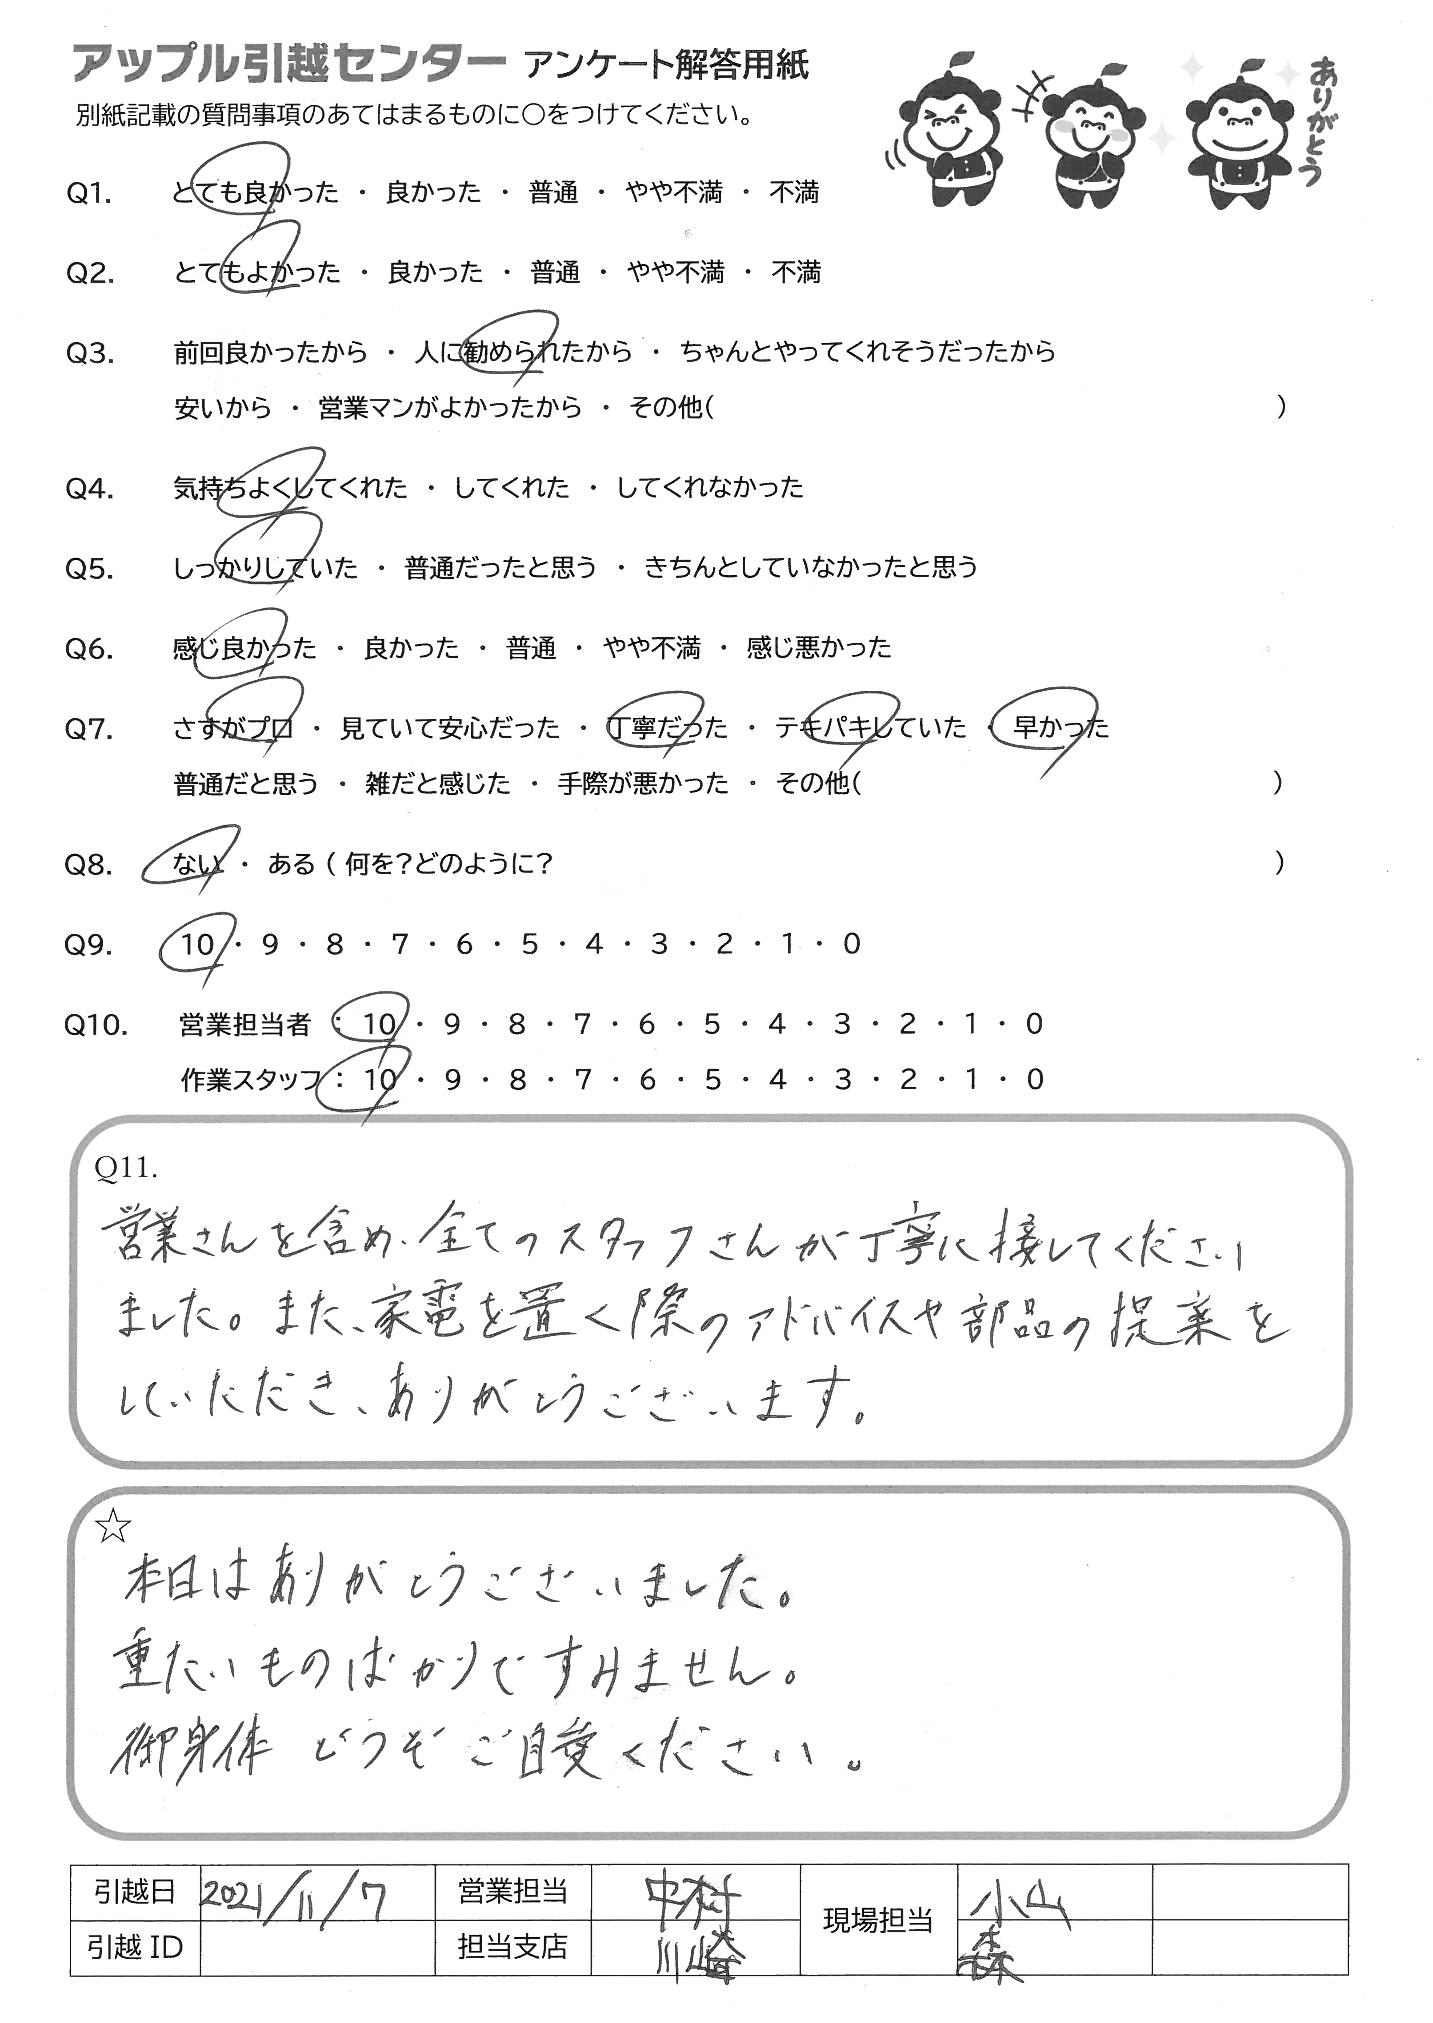 アップル引越センター アンケート解答用紙
別紙記載の質問事項のあてはまるものに○をつけてください。
ありがとう
Q1. とても良かった ・ 良かった ・ 普通 ・ やや不満 ・ 不満
Q2. とてもよかった ・ 良かった ・ 普通 ・ やや不満 ・ 不満
Q3. 前回良かったから ・ 人に勧められたから ・ ちゃんとやってくれそうだったから
安いから ・ 営業マンがよかったから ・ その他( )
Q4. 気持ちよくしてくれた ・ してくれた ・ してくれなかった
Q5. しっかりしていた ・ 普通だったと思う ・ きちんとしていなかったと思う
Q6. 感じ良かった ・ 良かった ・ 普通 ・ やや不満 ・ 感じ悪かった
Q7. さすがプロ ・ 見ていて安心だった ・ 丁寧だった ・ テキパキしていた ・ 早かった
普通だと思う ・ 雑だと感じた ・ 手際が悪かった ・ その他( )
Q8. ない ・ ある ( 何を?どのように? )
Q9. 10 ・ 9 ・ 8 ・ 7 ・ 6 ・ 5 ・ 4 ・ 3 ・ 2 ・ 1 ・ 0
Q10. 営業担当者 : 10 ・ 9 ・ 8 ・ 7 ・ 6 ・ 5 ・ 4 ・ 3 ・ 2 ・ 1 ・ 0
作業スタッフ : 10 ・ 9 ・ 8 ・ 7 ・ 6 ・ 5 ・ 4 ・ 3 ・ 2 ・ 1 ・ 0
Q11.
営業さんを含め、全てのスタッフさんが丁寧に接してください
ました。また、家電を置く際のアドバイスや部品の提案を
していただき、ありがとうございます。
☆
本日はありがとうございました。
重たいものばかりですみません。
御身体 どうぞご自愛ください。
引越日 2021/11/7 営業担当 中村 現場担当 小山
引越 ID 担当支店 川崎 森